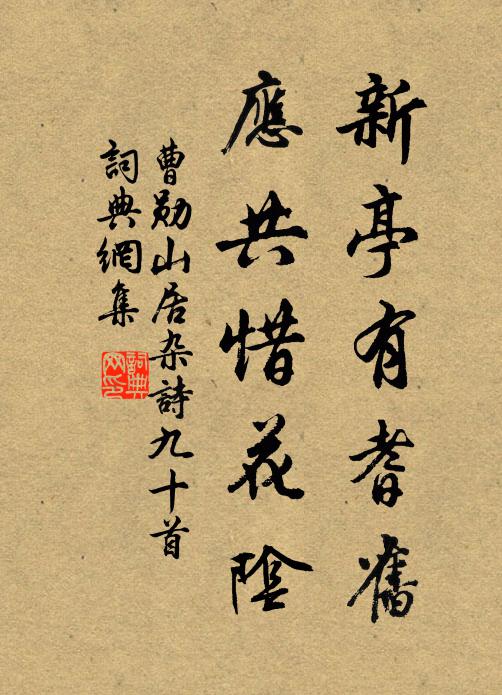 新亭有耆舊
應共惜花陰
曹勛山居杂詩九十首
詞典網集
詞典网印